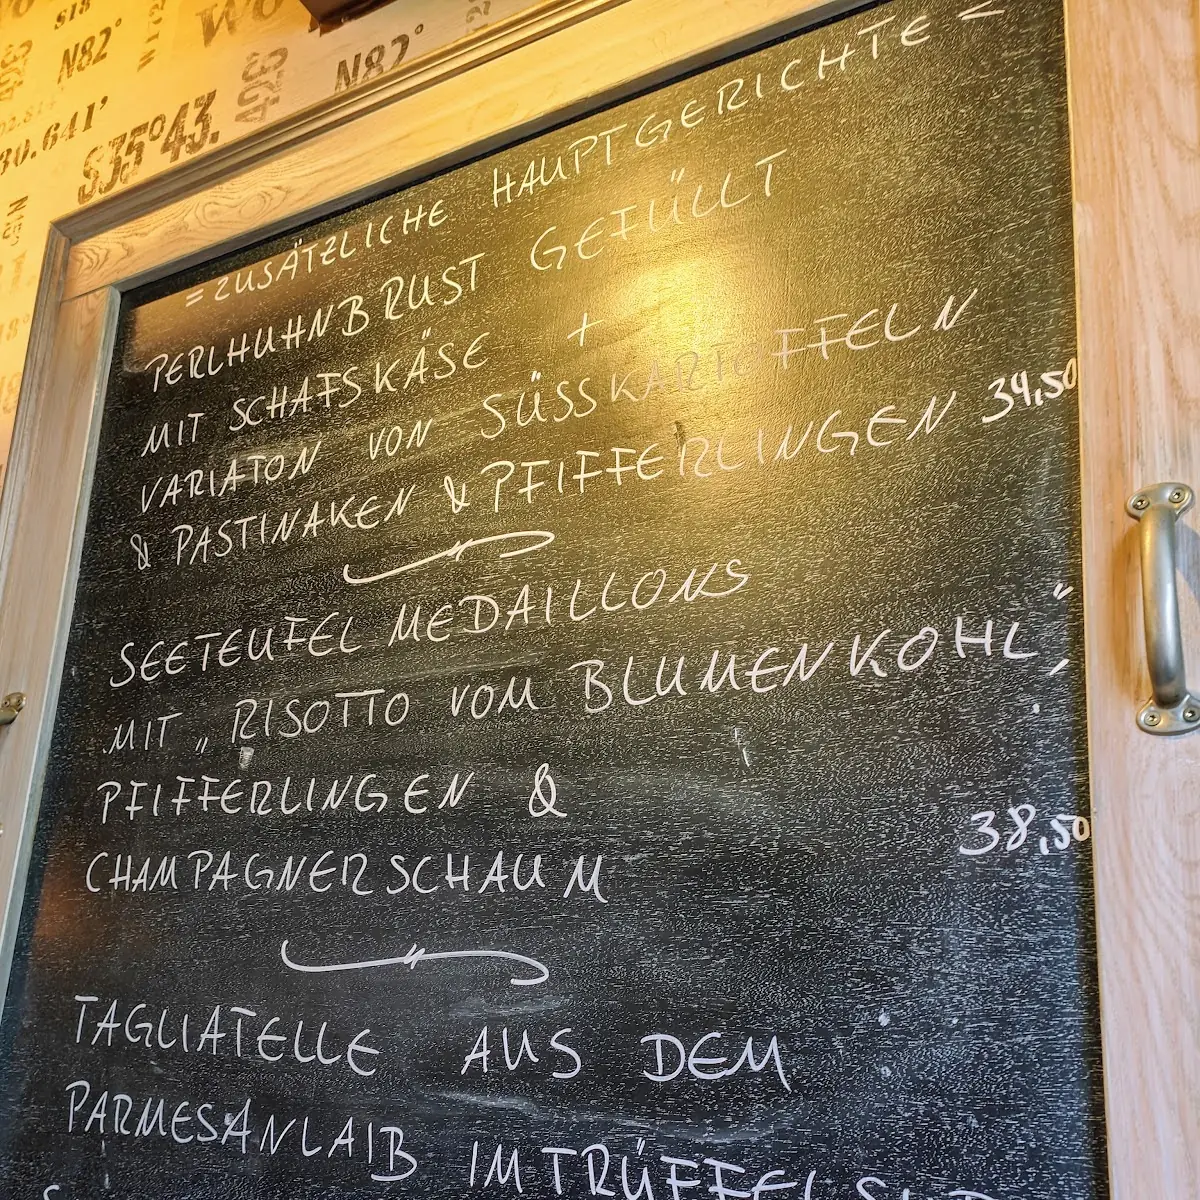 S18
N82°
N82°
30.641'
S35°43.
= ZUSÄTZLICHE HAUPTGERICHTE =
PERLHUHNBRUST GEFÜLLT
MIT SCHAFSKÄSE +
VARIATON VON SÜSSKARTOFFELN
& PASTINAKEN & PFIFFERLINGEN 34,50
SEETEUFEL MEDAILLONS
MIT „RISOTTO VOM BLUMENKOHL",
PFIFFERLINGEN &
CHAMPAGNERSCHAUM 38,50
TAGLIATELLE AUS DEM
PARMESANLAIB IM TRÜFFELSUD